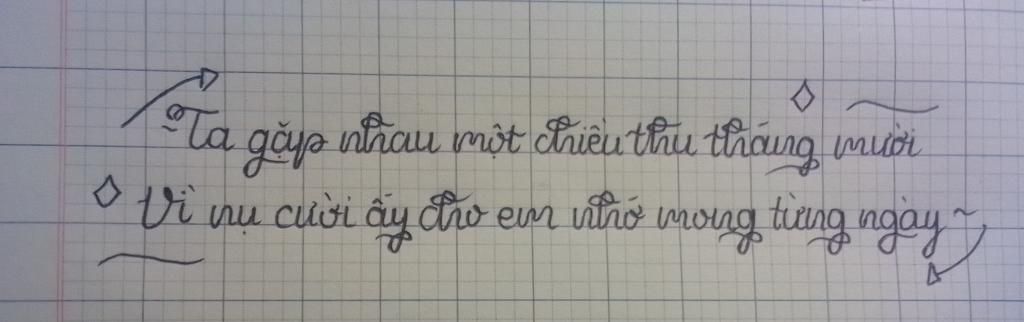 Ta gặp nhau một chiều thu tháng mười
Vì nụ cười ấy cho em nhớ mong từng ngày ~